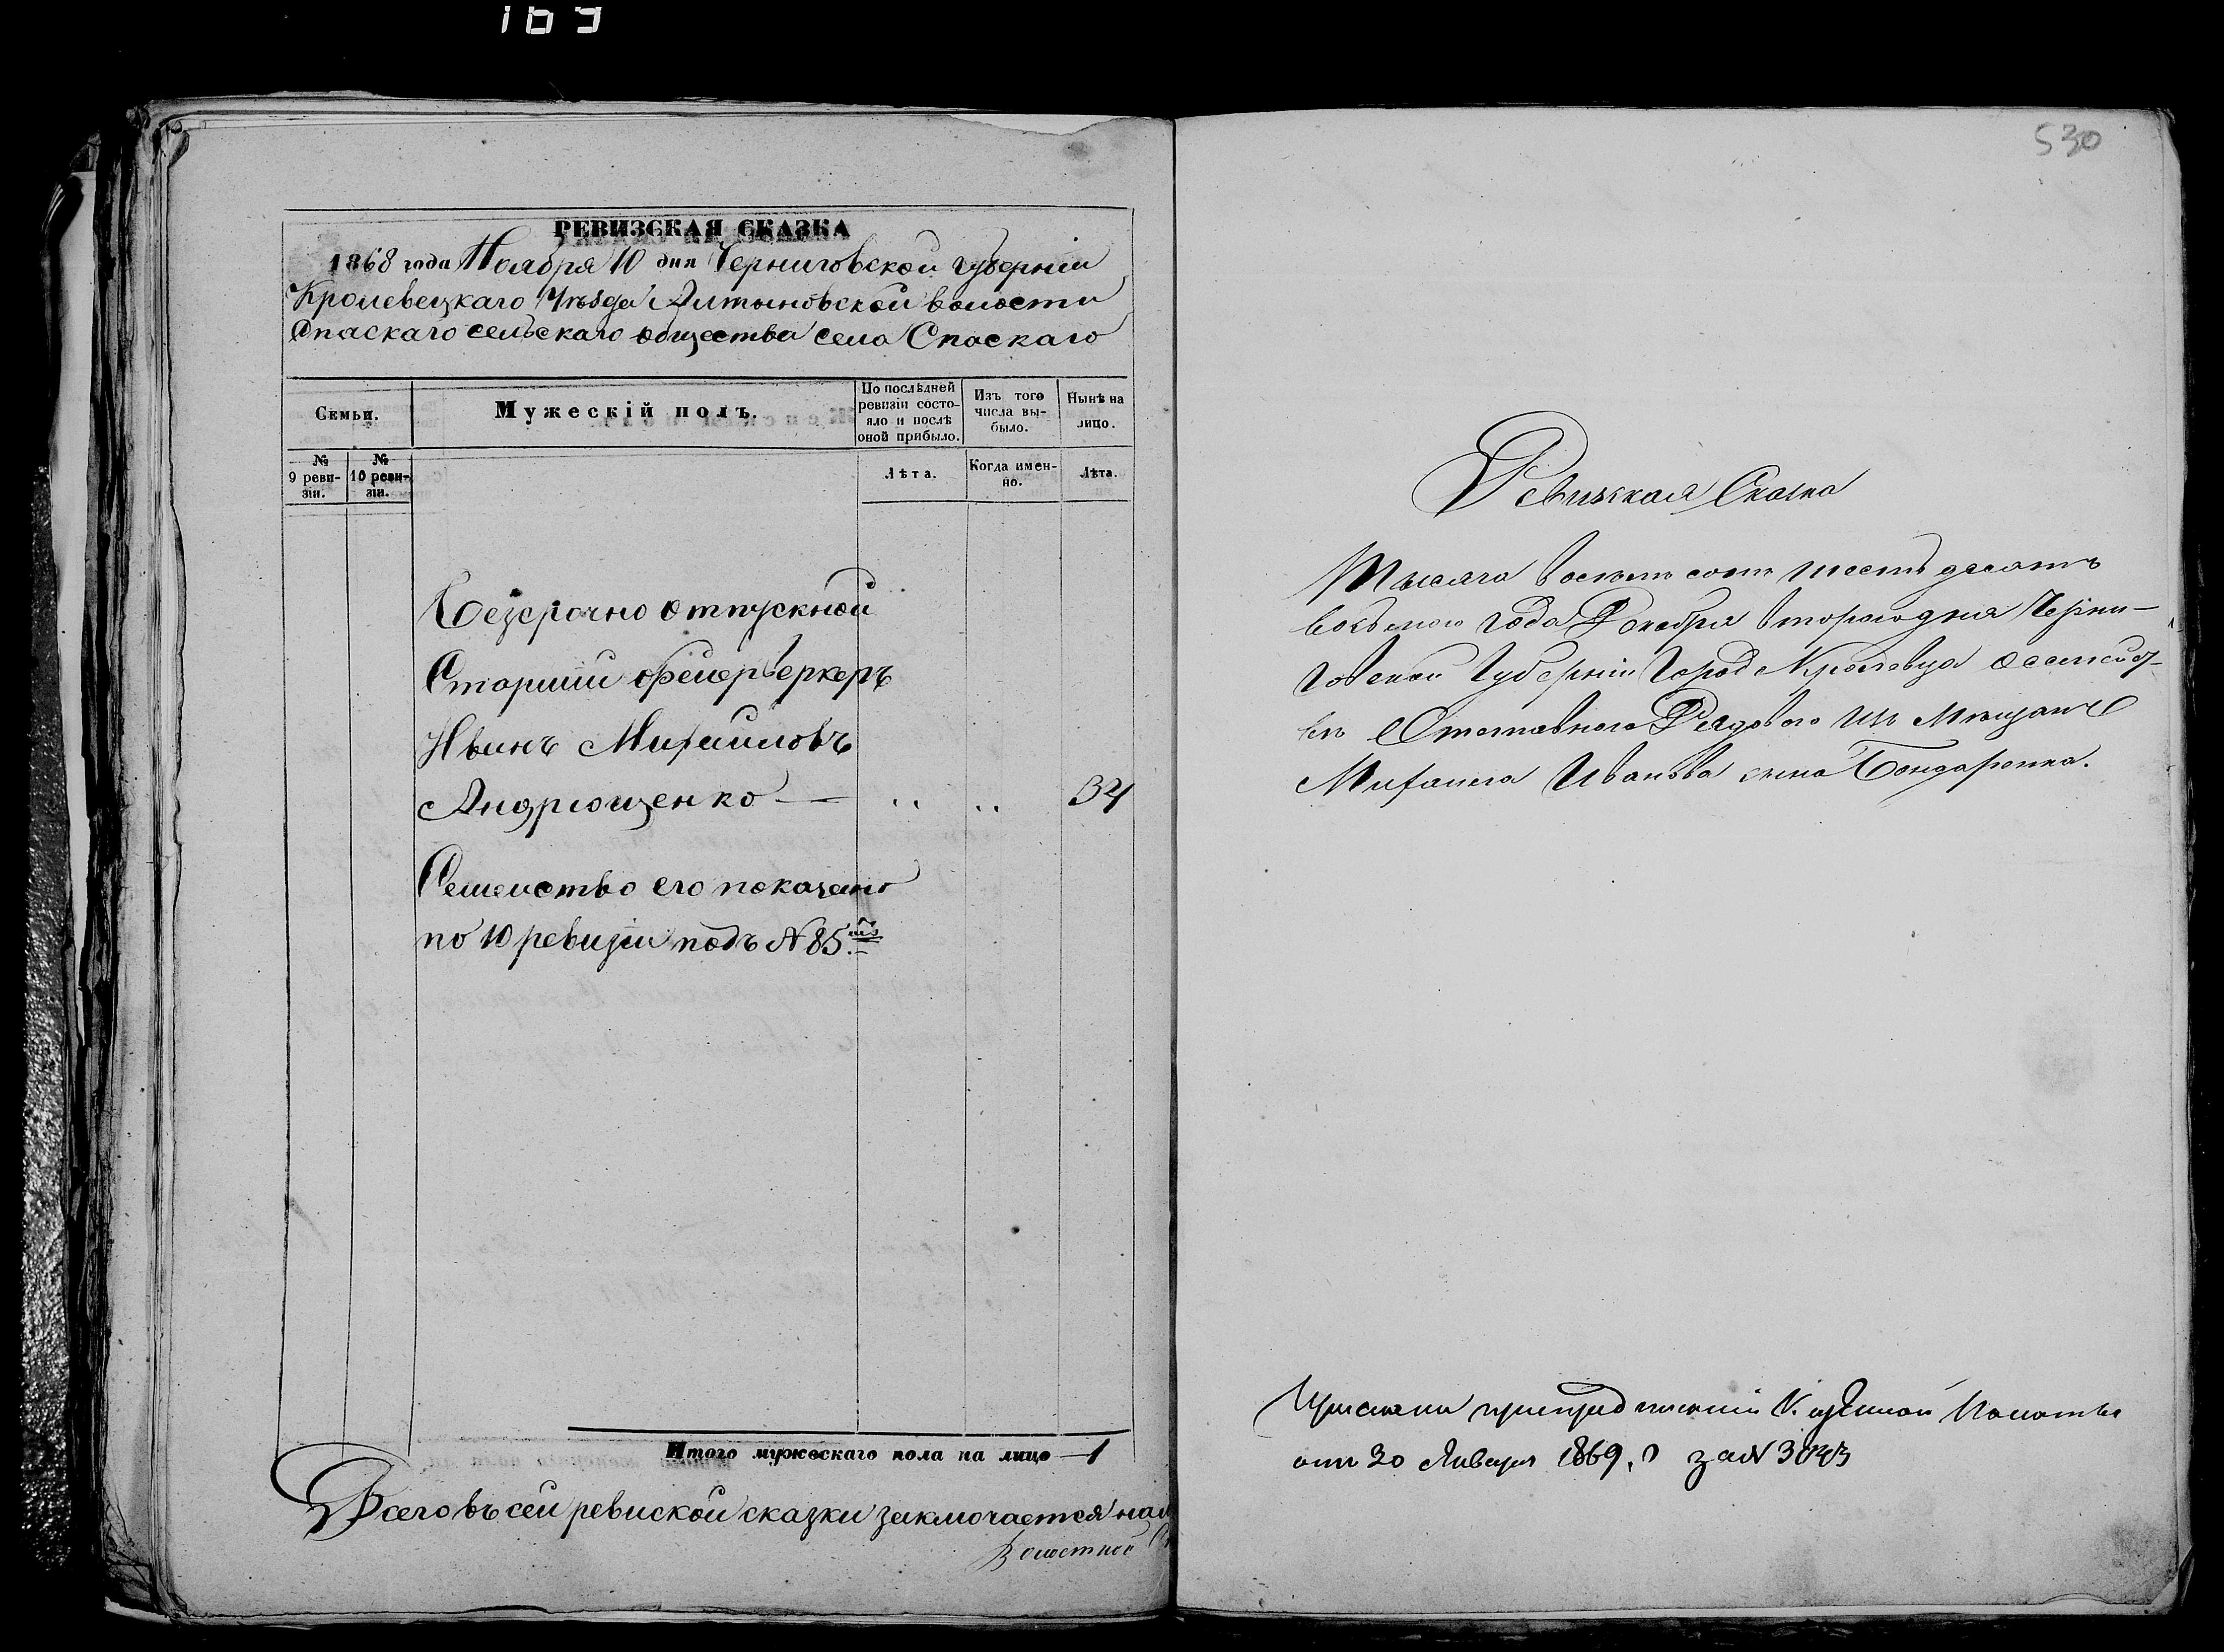 169
РЕВИЗСКАЯ СКАЗКА
1868 года Ноября 10 дня Черниговской губерніи
Кролевецкаго Уѣзда Алтыновской волости
Спаскаго сельскаго общества села Спаскаго
Семьи.
Мужескій полъ.
По послѣдней ревизіи состояло и послѣ оной прибыло.
Изъ того числа выбыло.
Нынѣ на лицо.
№ 9 ревизіи.
№ 10 ревизіи.
Лѣта.
Когда именно.
Лѣта.
Безсрочно отпускной
Старший фейерверкеръ
Иванъ Михайловъ
Андрющенко — .. .. 34
Семейство его показано
по 10 ревизіи подъ № 85.
Итого мужескаго пола на лицо — 1
Всего въ сей ревиской сказки заключается
Волостной
530
Ревизская Сказка
Тысяча восемь сотъ шестьдесятъ
восьмого Года Декабря второго дня Черни-
говской Губерніи Города Кролевца
Отставного Рядового изъ Мѣщанъ
Михаила Иванова сына Бондаренка.
Казенной Палаты
отъ 30 Января 1869 за №